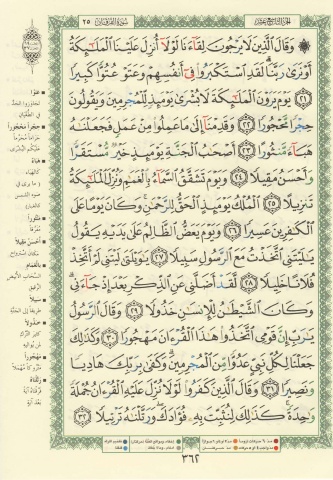 الجزء التاسع عشر
سورة الفرقان ٢٥
وَقَالَ الَّذِينَ لَا يَرْجُونَ لِقَاءَنَا لَوْلَا أُنزِلَ عَلَيْنَا الْمَلَٰئِكَةُ
أَوْ نَرَىٰ رَبَّنَا لَقَدِ اسْتَكْبَرُوا فِي أَنفُسِهِمْ وَعَتَوْ عُتُوًّا كَبِيرًا
﴿٢١﴾ يَوْمَ يَرَوْنَ الْمَلَٰئِكَةَ لَا بُشْرَىٰ يَوْمَئِذٍ لِّلْمُجْرِمِينَ وَيَقُولُونَ
حِجْرًا مَّحْجُورًا ﴿٢٢﴾ وَقَدِمْنَا إِلَىٰ مَا عَمِلُوا مِنْ عَمَلٍ فَجَعَلْنَٰهُ
هَبَاءً مَّنثُورًا ﴿٢٣﴾ أَصْحَٰبُ الْجَنَّةِ يَوْمَئِذٍ خَيْرٌ مُّسْتَقَرًّا
وَأَحْسَنُ مَقِيلًا ﴿٢٤﴾ وَيَوْمَ تَشَقَّقُ السَّمَاءُ بِالْغَمَٰمِ وَنُزِّلَ الْمَلَٰئِكَةُ
تَنزِيلًا ﴿٢٥﴾ الْمُلْكُ يَوْمَئِذٍ الْحَقُّ لِلرَّحْمَٰنِ وَكَانَ يَوْمًا عَلَى
الْكَٰفِرِينَ عَسِيرًا ﴿٢٦﴾ وَيَوْمَ يَعَضُّ الظَّالِمُ عَلَىٰ يَدَيْهِ يَقُولُ
يَٰلَيْتَنِي اتَّخَذْتُ مَعَ الرَّسُولِ سَبِيلًا ﴿٢٧﴾ يَٰوَيْلَتَىٰ لَيْتَنِي لَمْ أَتَّخِذْ
فُلَانًا خَلِيلًا ﴿٢٨﴾ لَّقَدْ أَضَلَّنِي عَنِ الذِّكْرِ بَعْدَ إِذْ جَاءَنِي
وَكَانَ الشَّيْطَٰنُ لِلْإِنسَٰنِ خَذُولًا ﴿٢٩﴾ وَقَالَ الرَّسُولُ
يَٰرَبِّ إِنَّ قَوْمِي اتَّخَذُوا هَٰذَا الْقُرْءَانَ مَهْجُورًا ﴿٣٠﴾ وَكَذَٰلِكَ
جَعَلْنَا لِكُلِّ نَبِيٍّ عَدُوًّا مِّنَ الْمُجْرِمِينَ وَكَفَىٰ بِرَبِّكَ هَادِيًا
وَنَصِيرًا ﴿٣١﴾ وَقَالَ الَّذِينَ كَفَرُوا لَوْلَا نُزِّلَ عَلَيْهِ الْقُرْءَانُ جُمْلَةً
وَٰحِدَةً كَذَٰلِكَ لِنُثَبِّتَ بِهِ فُؤَادَكَ وَرَتَّلْنَٰهُ تَرْتِيلًا ﴿٣٢﴾
٣٦٢
عتوا
حجرا محجورا
هباء
منثورا
أحسن مقيلا
بالغمام
سبيلا
خذولا
مهجورا
رتلناه